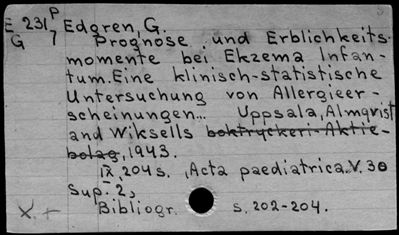 E 231 P Edgren, G.
G 7 Prognose und Erblichkeits-
momente bei Ekzema Infan-
tum. Eine klinisch-statistische
Untersuchung von Allergieer-
scheinungen... Uppsala, Almqvist
and Wiksells boktryckeri-Aktie-
bolag, 1943.
IX, 204 s. (Acta paediatrica. V. 30
Sup. 2)
X + Bibliogr. s. 202-204.